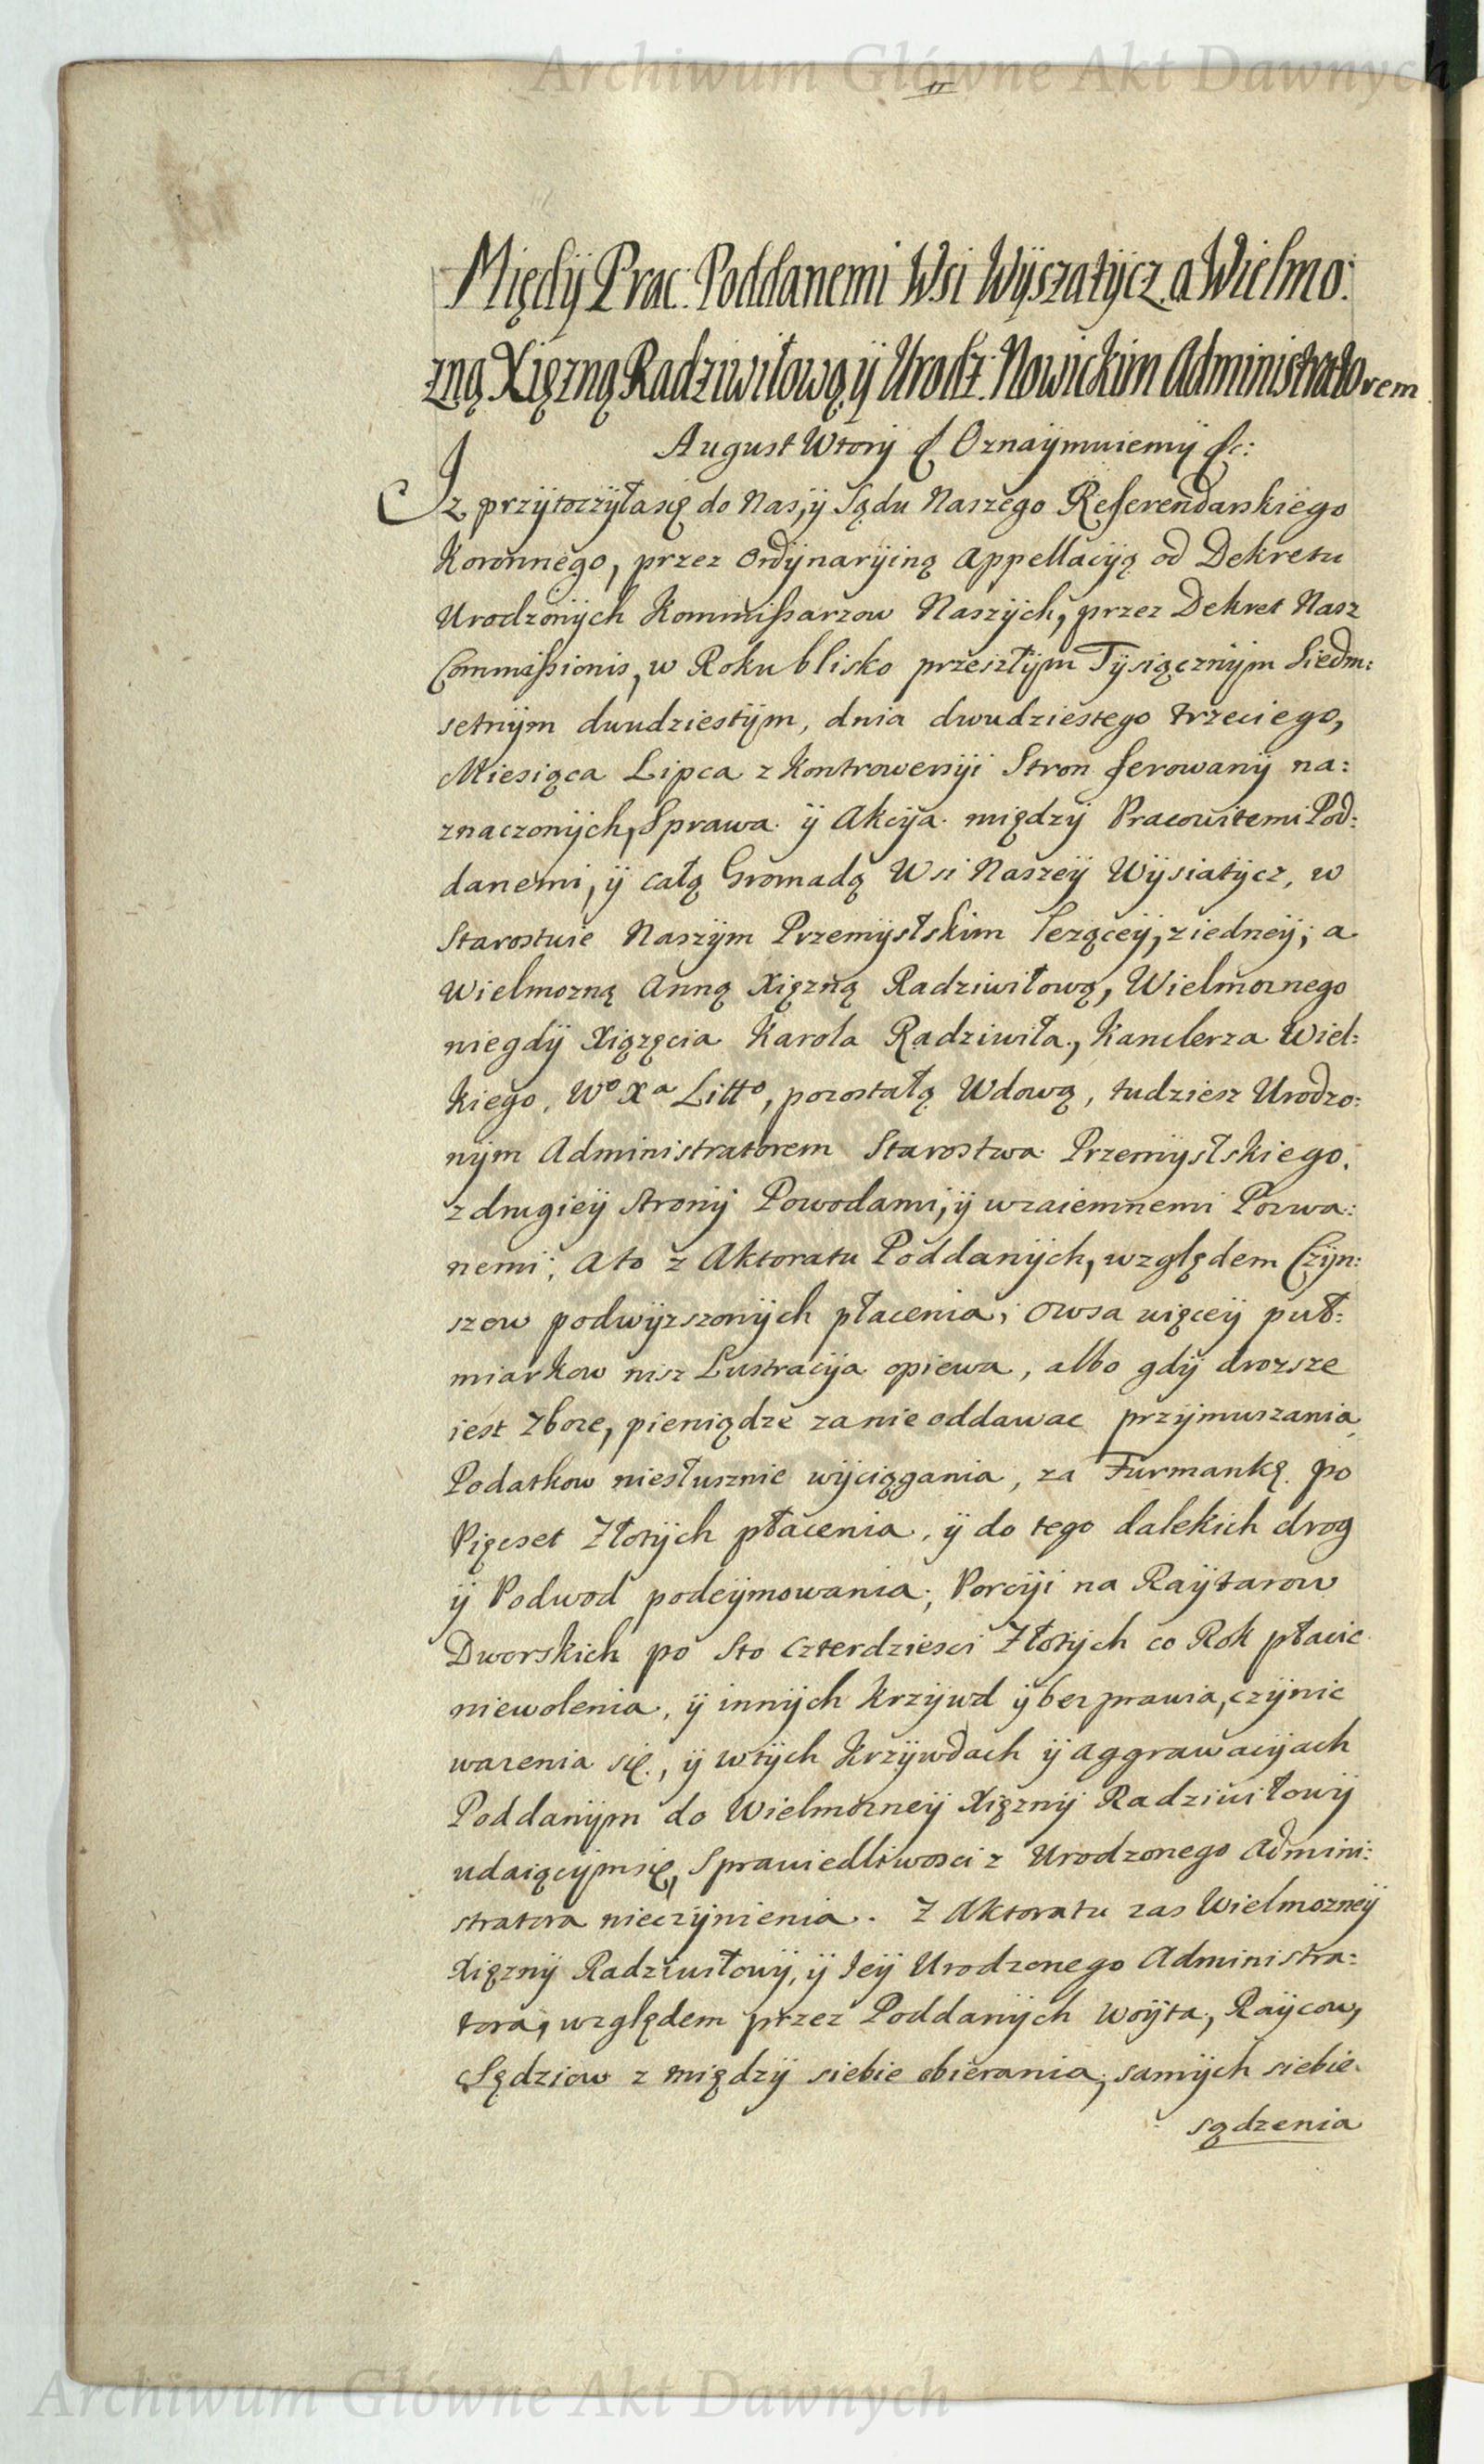 Archiwum Główne Akt Dawnych
Międÿ Prac: Poddanemi Wsi Wÿszatÿcz a Wielmo:
zną Xięzną Radziwiłową ÿ Urodz: Nowickim Administratorem
August Wtorÿ &c Oznaÿmuiemÿ &c:
Iz przÿtoczÿłasię do Nas, ÿ Sądu Naszego Referendarskiego
Koronnego, przez Ordÿnarÿiną Appellacÿą od Dekretu
Urodzonÿch Kommissarzow Naszÿch, przez Dekret Nasz
Commissionis, w Roku blisko przeszłÿm Tÿsiącznÿm Siedm:
setnÿm dwudziestÿm, dnia dwudziestego trzeciego,
Miesiąca Lipca z Kontrowersÿi Stron ferowanÿ na:
znaczonÿch, Sprawa ÿ Akcÿa międzÿ Pracowitemi Pod:
danemi, ÿ całą Gromadą Wsi Naszeÿ Wÿsiatÿcz, w
Starostwie Naszÿm Przemÿslskim lezącеÿ, z iedneÿ; a
Wielmozną Anną Xięzną Radziwiłową, Wielmoznego
niegdÿ Xiązęcia Karola Radziwiła, Kanclerza Wiel:
kiego, Wº Xª Littº, pozostałą Wdową, tudziesz Urodzo:
nÿm Administratorem Starostwa Przemÿslskiego.
z drugieÿ Stronÿ Powodami, ÿ wzaiemnemi Pozwa:
nemi; A to z Aktoratu Poddanÿch, względem Czÿn:
szow podwÿzszonÿch płacenia; Owsa więceÿ puł:
miarkow nisz Lustracÿa opiewa, albo gdÿ drozsze
iest zboze, pieniądze zanie oddawac przÿmuszania,
Podatkow niesłusznie wÿciągania, za Furmankę po
Pięcset Złotÿch płacenia, ÿ do tego dalekich drog
ÿ Podwod podeÿmowania; Porcÿi na Raÿtarow
Dworskich po Sto Czterdziesci Złotÿch co Rok płacic
niewolenia, ÿ innÿch krzÿwd ÿ bezprawia, czÿnic
wazenia się, ÿ wtÿch krzÿwdach ÿ aggrawacÿach
Poddanÿm do Wielmozneÿ Xięznÿ Radziwiłowÿ
udaiącÿmsię, Sprawiedliwosci z Urodzonego Admini:
stratora nieczÿnienia. Z Aktoratu zas Wielmozneÿ
Xięznÿ Radziwiłowÿ, ÿ Ieÿ Urodzonego Administra:
tora, względem przez Poddanÿch Woÿta, Raÿcow,
Sędziow z międzÿ siebie obierania, samÿch siebie
sądzenia
Archiwum Główne Akt Dawnych